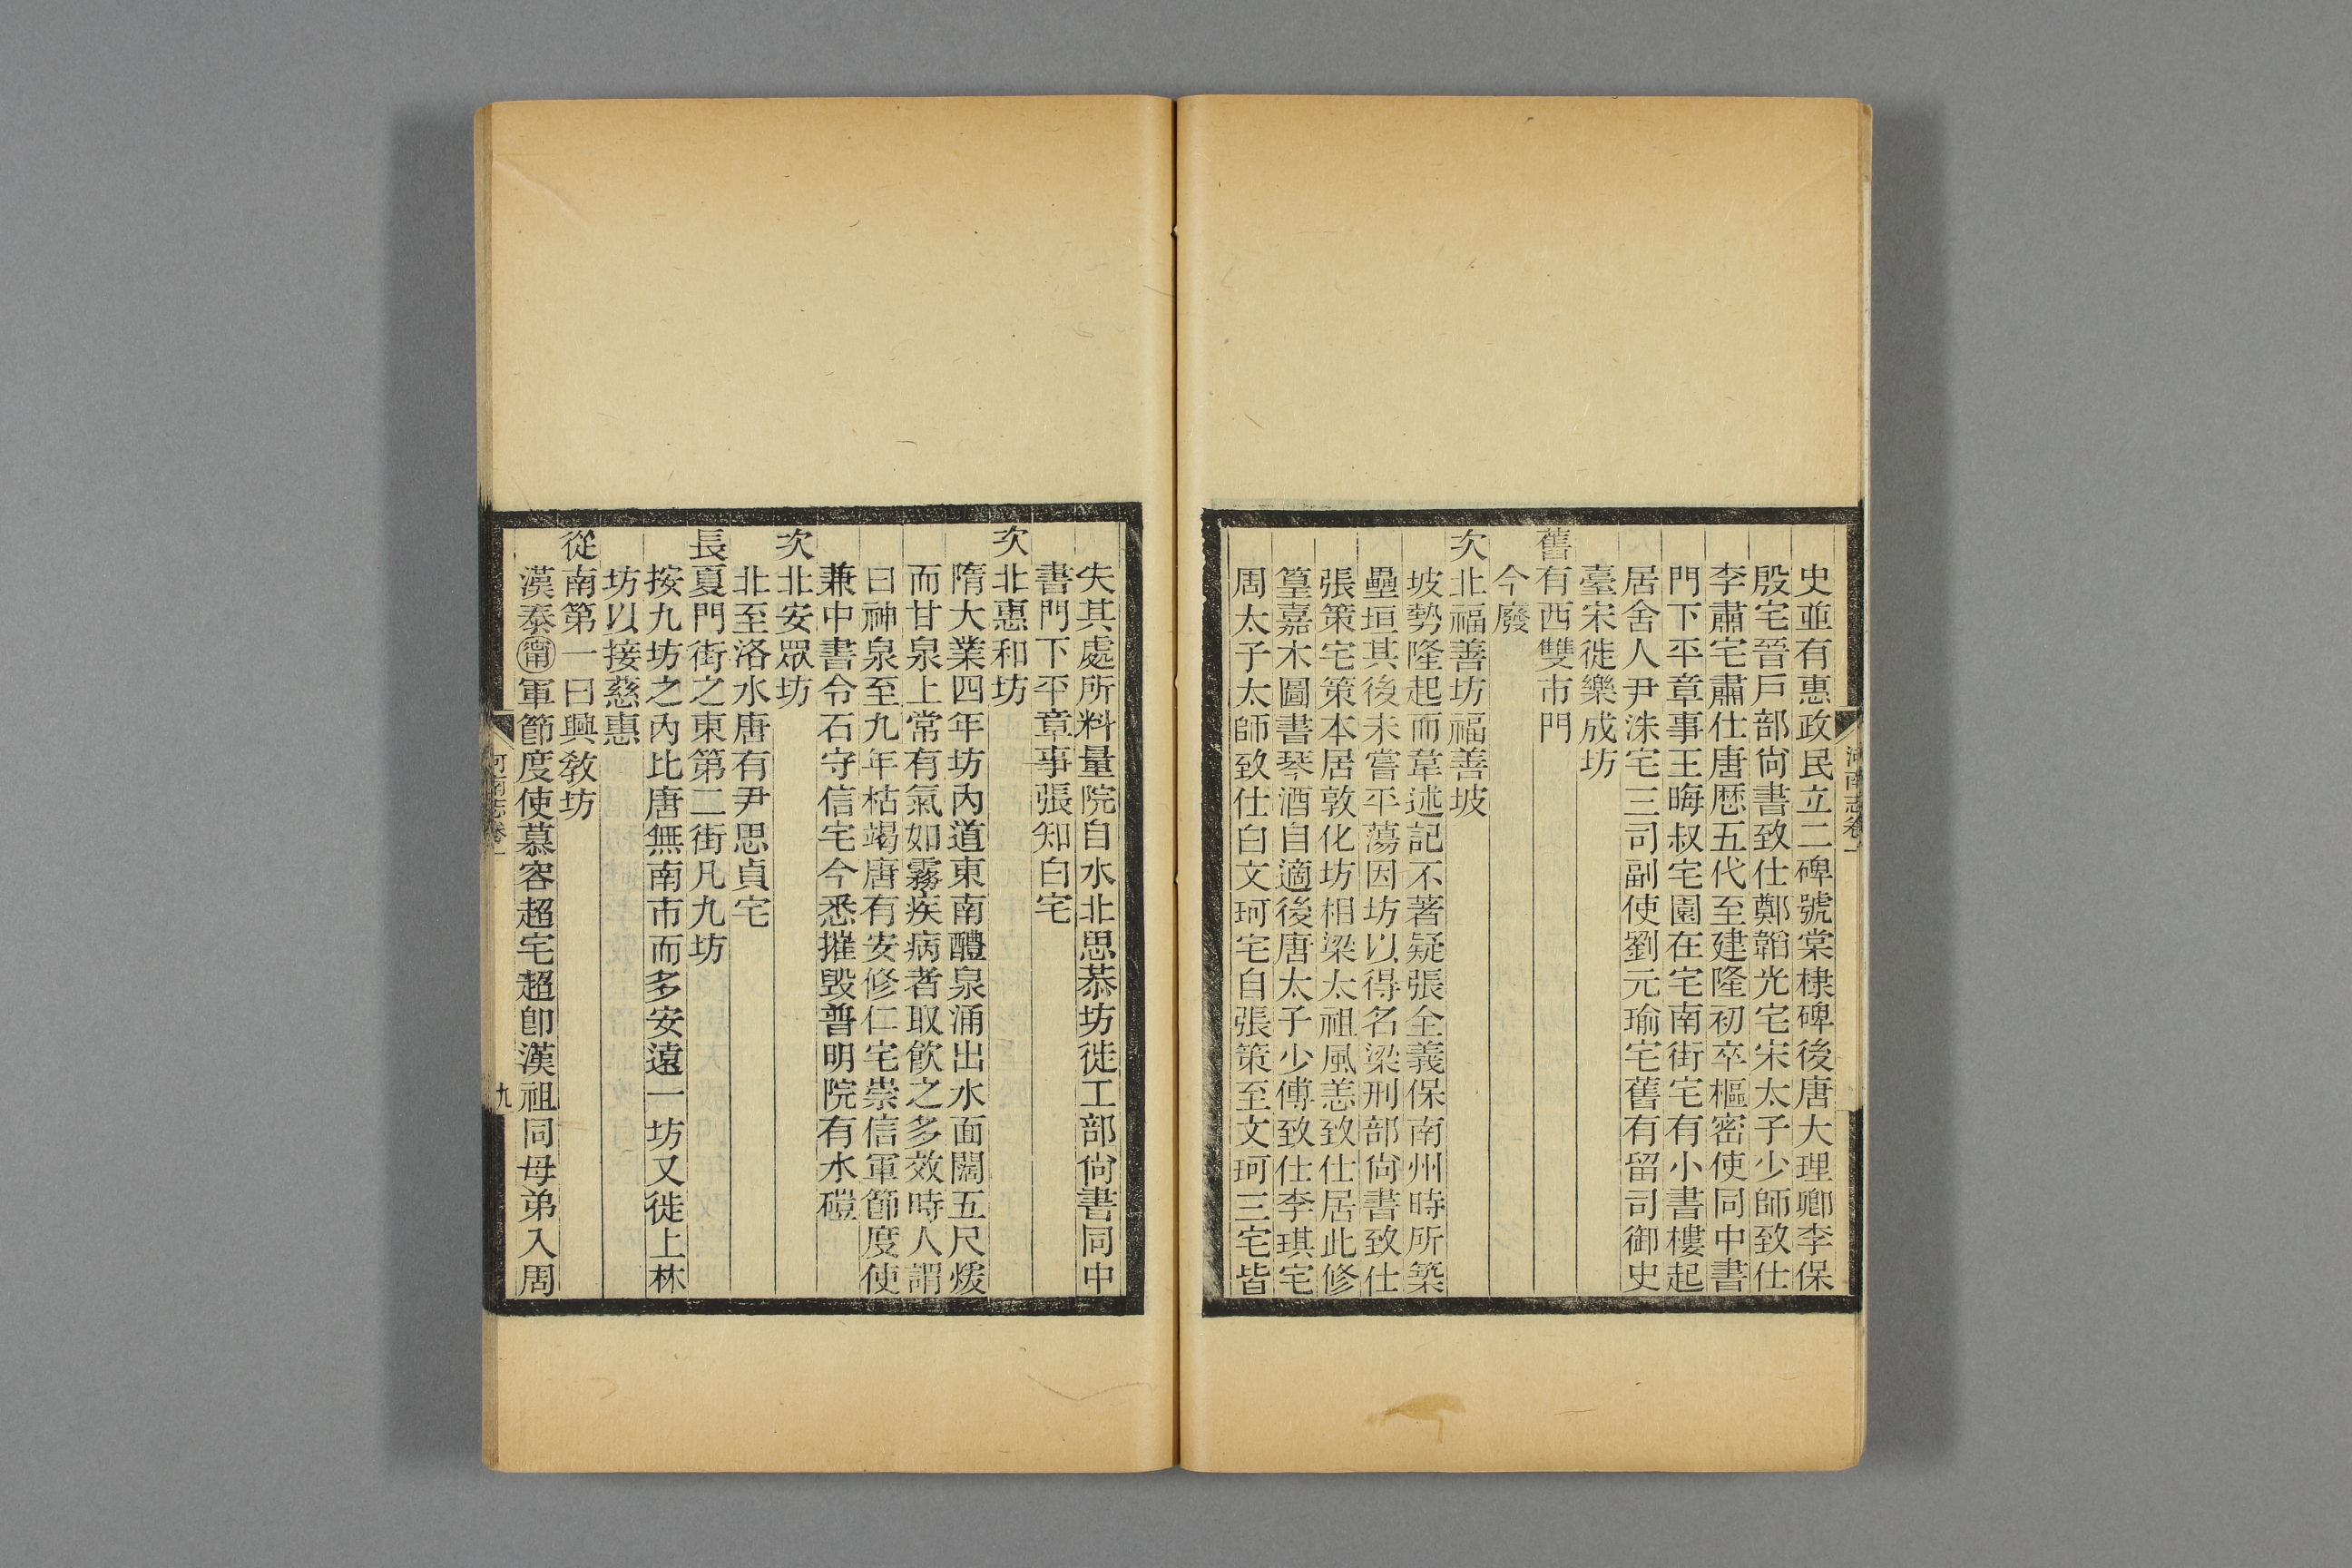 史並有惠政民立二碑號棠棣碑後唐大理卿李保
殷宅晉戶部尙書致仕鄭韜光宅宋太子少師致仕
李肅宅肅仕唐歷五代至建隆初卒樞密使同中書
門下平章事王晦叔宅園在宅南街宅有小書樓起
居舍人尹洙宅三司副使劉元瑜宅舊有留司御史
臺宋徙樂成坊
舊有西雙市門
今廢
次北福善坊福善坡
坡勢隆起而韋述記不著疑張全義保南州時所築
壘垣其後未嘗平蕩因坊以得名梁刑部尙書致仕
張策宅策本居敦化坊相梁太祖風恙致仕居此修
篁嘉木圖書琴酒自適後唐太子少傅致仕李琪宅
周太子太師致仕白文珂宅自張策至文珂三宅皆
河南志卷一
失其處所料量院自水北思恭坊徙工部尙書同中
書門下平章事張知白宅
次北惠和坊
隋大業四年坊內道東南醴泉涌出水面闊五尺煖
而甘泉上常有氣如霧疾病者取飮之多效時人謂
曰神泉至九年枯竭唐有安修仁宅崇信軍節度使
兼中書令石守信宅今悉摧毀普明院有水磑
次北安眾坊
北至洛水唐有尹思貞宅
長夏門街之東第二街凡九坊
按九坊之內比唐無南市而多安遠一坊又徙上林
坊以接慈惠
從南第一曰興敎坊
漢泰甯軍節度使慕容超宅超卽漢祖同母弟入周
河南志卷一
九